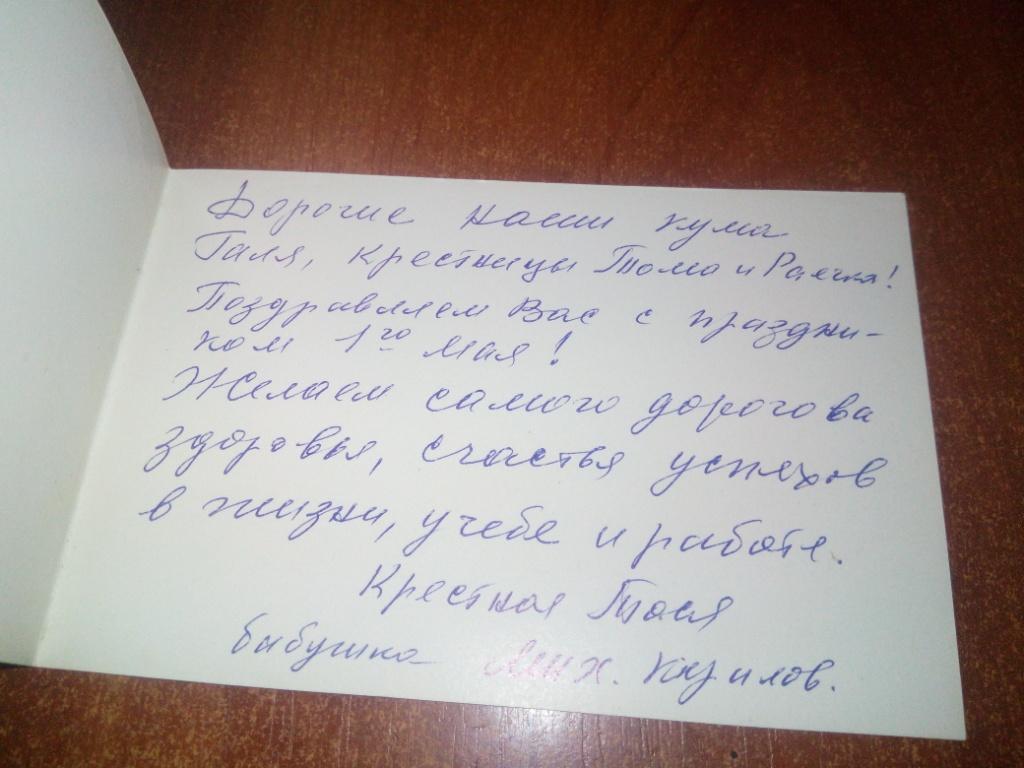 Дорогие наши кума
Галя, крестницы Тома и Раечка!
Поздравляем Вас с праздни-
ком 1го Мая!
Желаем самого дорогова
здоровья, счастья успехов
в жизни, учебе и работе.
Крестная Тося
бабушка